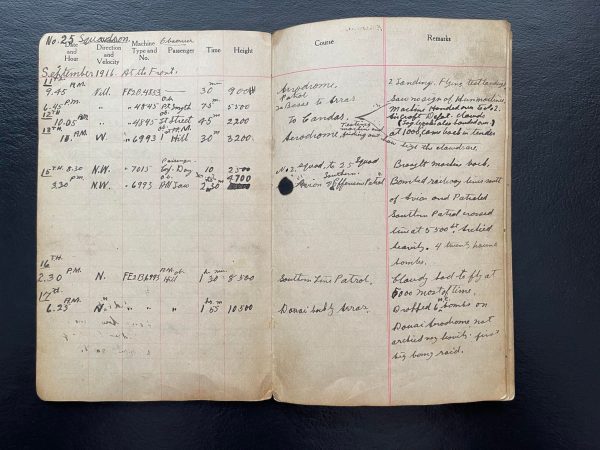 No. 25 Squadron.
Date and Hour
Direction and Velocity
Machine Type and No.
Observer
Passenger
Time
Height
Course
Remarks
September 1916 At the Front.
11TH A.M.
9.45 Nill. FE2B.4883 — 30 m 900 ft Aerodrome. 2 Landing. Flying test landing
P.M. Patrol
6.45 " " 4845 75 m 5500 Bases to Arras Saw no sign of Hun machines
12TH A.M.
10.05 " 4845 Street 45 2200 To Candas. Machine Handed over to No. 2.
Aircraft Depot. clouds
W. " 6993 Hill 30 3200 Aerodrome, at 1000, came back in under
Testing machine and
15TH. 8.30 N.W. " 7015 Cpl. Day 10 2500 No 2. to 25 Squad Brought machine back.
Passenger
Southern
3.30 P.M. N.W. " 6993 2.30 4700 Avion Offensive Patrol Bombed railway lines south
of Avion and Patroled
Southern Patrol crossed
line at 5500 ft. Archied
heavily. 4 twenty pound
bombs.
16TH P.M.
2.30 N. FE2B6993 Hill 1 30 8500 Southern Line Patrol. Cloudy had to fly at
5000 most of time.
17TH A.M.
6.25 N. " " 1 55 10500 Douai back by Arras. Dropped 6 bombs on
Douai Aerodrome not
archied very heavily. first
big bomb raid.